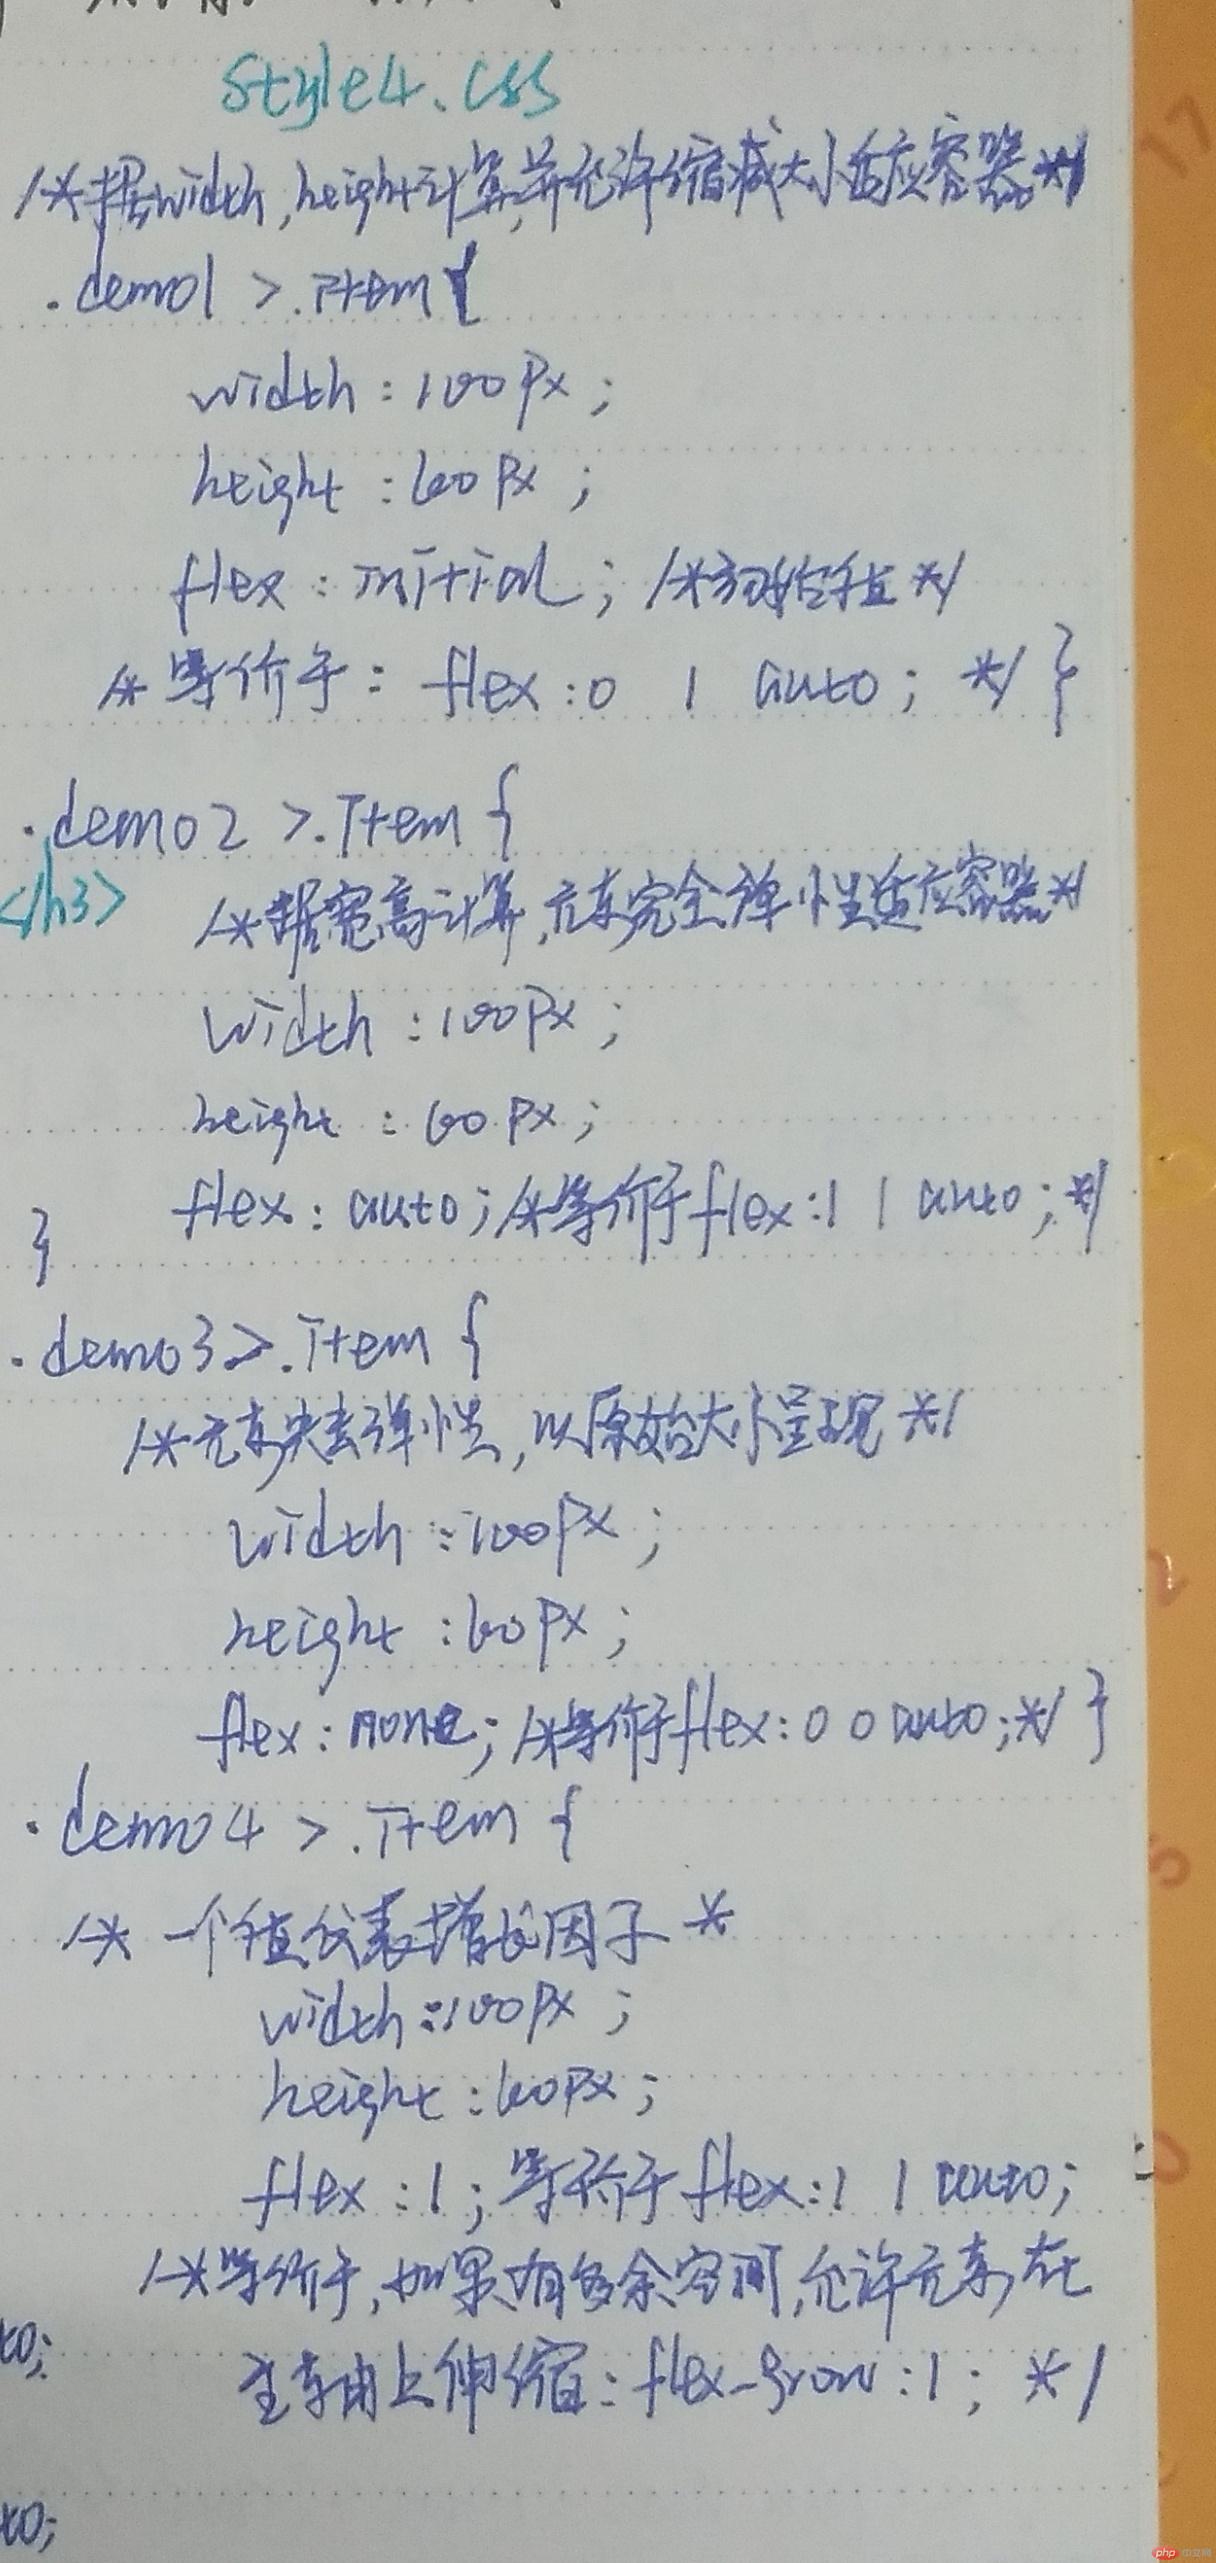 style4.css
/*据width,height计算,并允许缩减大小适应容器*/
.demo1 >.item{
width:100px;
height:60px;
flex:initial; /*初始值*/
/*等价于: flex:0 1 auto; */ }
.demo2 >.item {
</h3>
/*据宽高计算,元素完全弹性适应容器*/
width:100px;
height:60px;
flex:auto;/*等价于flex:1 1 auto;*/
}
.demo3>.item {
/*元素失去弹性,以原始大小呈现*/
width:100px;
height:60px;
flex:none;/*等价于flex:0 0 auto;*/ }
.demo4 >.item {
/* 一个值代表增长因子 *
width:100px;
height:60px;
flex:1;等价于flex:1 1 auto;
/*等价于,如果有多余空间,允许元素在
to;
主轴上伸缩:flex-grow:1; */
to;
17
2
5
0
php 中文网